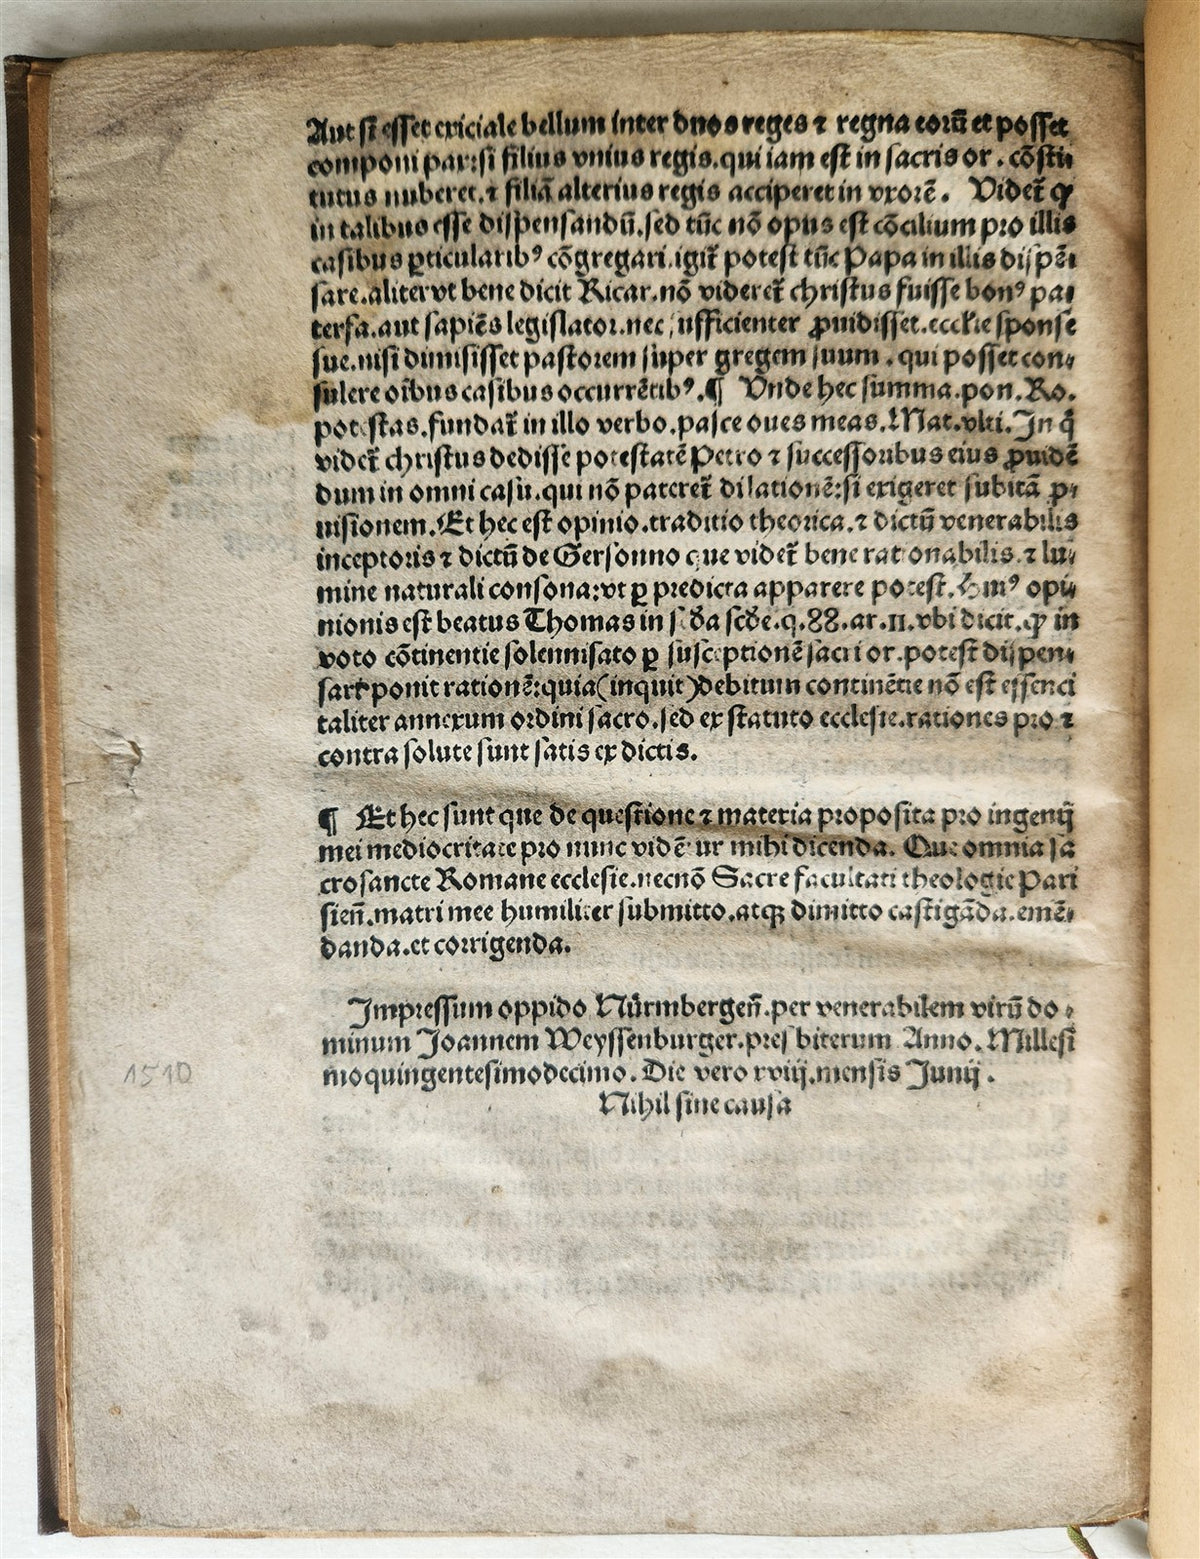 Aut si esset exiciale bellum inter duos reges ⁊ regna eorū et posset
componi par:si filius vnius regis.qui iam est in sacris or. cōsti⸗
tutus nuberet.⁊ filiā alterius regis acciperet in vxorē. Videt̄ ꝙ
in talibus esse dispensandū.sed tūc nō opus est cōcilium pro illis
casibus ꝑticularibꝰ cōgregari.igit̄ potest tūc Papa in illis dispē⸗
sare.aliter vt bene dicit Ricar.nō videret̄ christus fuisse bonꝰ pa⸗
terfa.aut sapiēs legislator.nec sufficienter ꝓuidisset.eccl'ie sponse
sue.nisi dimisisset pastorem super gregem suum.qui posset con⸗
sulere oībus casibus occurrētibꝰ.¶ Vnde hec summa.pon.Ro.
potestas.fundat̄ in illo verbo.pasce oues meas.Mat.vlti.In q̄
videt̄ christus dedisse potestatē Petro ⁊ successoribus eius ꝓuidē
dum in omni casu.qui nō pateret̄ dilationē:si exigeret subitā ꝓ⸗
uisionem.Et hec est opinio.traditio theorica.⁊ dictū venerabilis
inceptoris ⁊ dictū de Gersonno que videt̄ bene rationabilis.⁊ lu⸗
mine naturali consona:vt ꝑ predicta apparere potest. Hmꝰ opi⸗
nionis est beatus Thomas in scd'a scd'e.q.88.ar.11.vbi dicit.ꝙ in
voto cōtinentie solennisato ꝑ susceptionē sacri or.potest dispen⸗
sari ponit rationē:quia(inquit)debitum continētie nō est essenci
taliter annexum ordini sacro.sed ex statuto ecclesie.rationes pro ⁊
contra solute sunt satis ex dictis.
¶ Et hec sunt que de questione ⁊ materia proposita pro ingenij
mei mediocritate pro nunc vidētur mihi dicenda. Que omnia sa
crosancte Romane ecclesie.necnō Sacre facultati theologie Pari
sieñ.matri mee humiliter submitto.atqꝫ dimitto castigāda.emē⸗
danda.et corrigenda.
Impressum oppido Nürmbergeñ.per venerabilem virū do⸗
minum Joannem Weyssenburger.presbiterum Anno.Millesi
moquingentesimodecimo. Die vero xviij.mensis Junij.
Nihil sine causa
1510